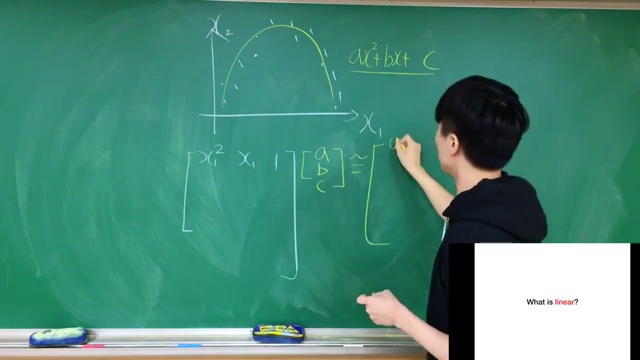 x₂
ax²+bx+ c
x₁
[x₁² x₁ 1] [a b c] ≈ [
What is linear?